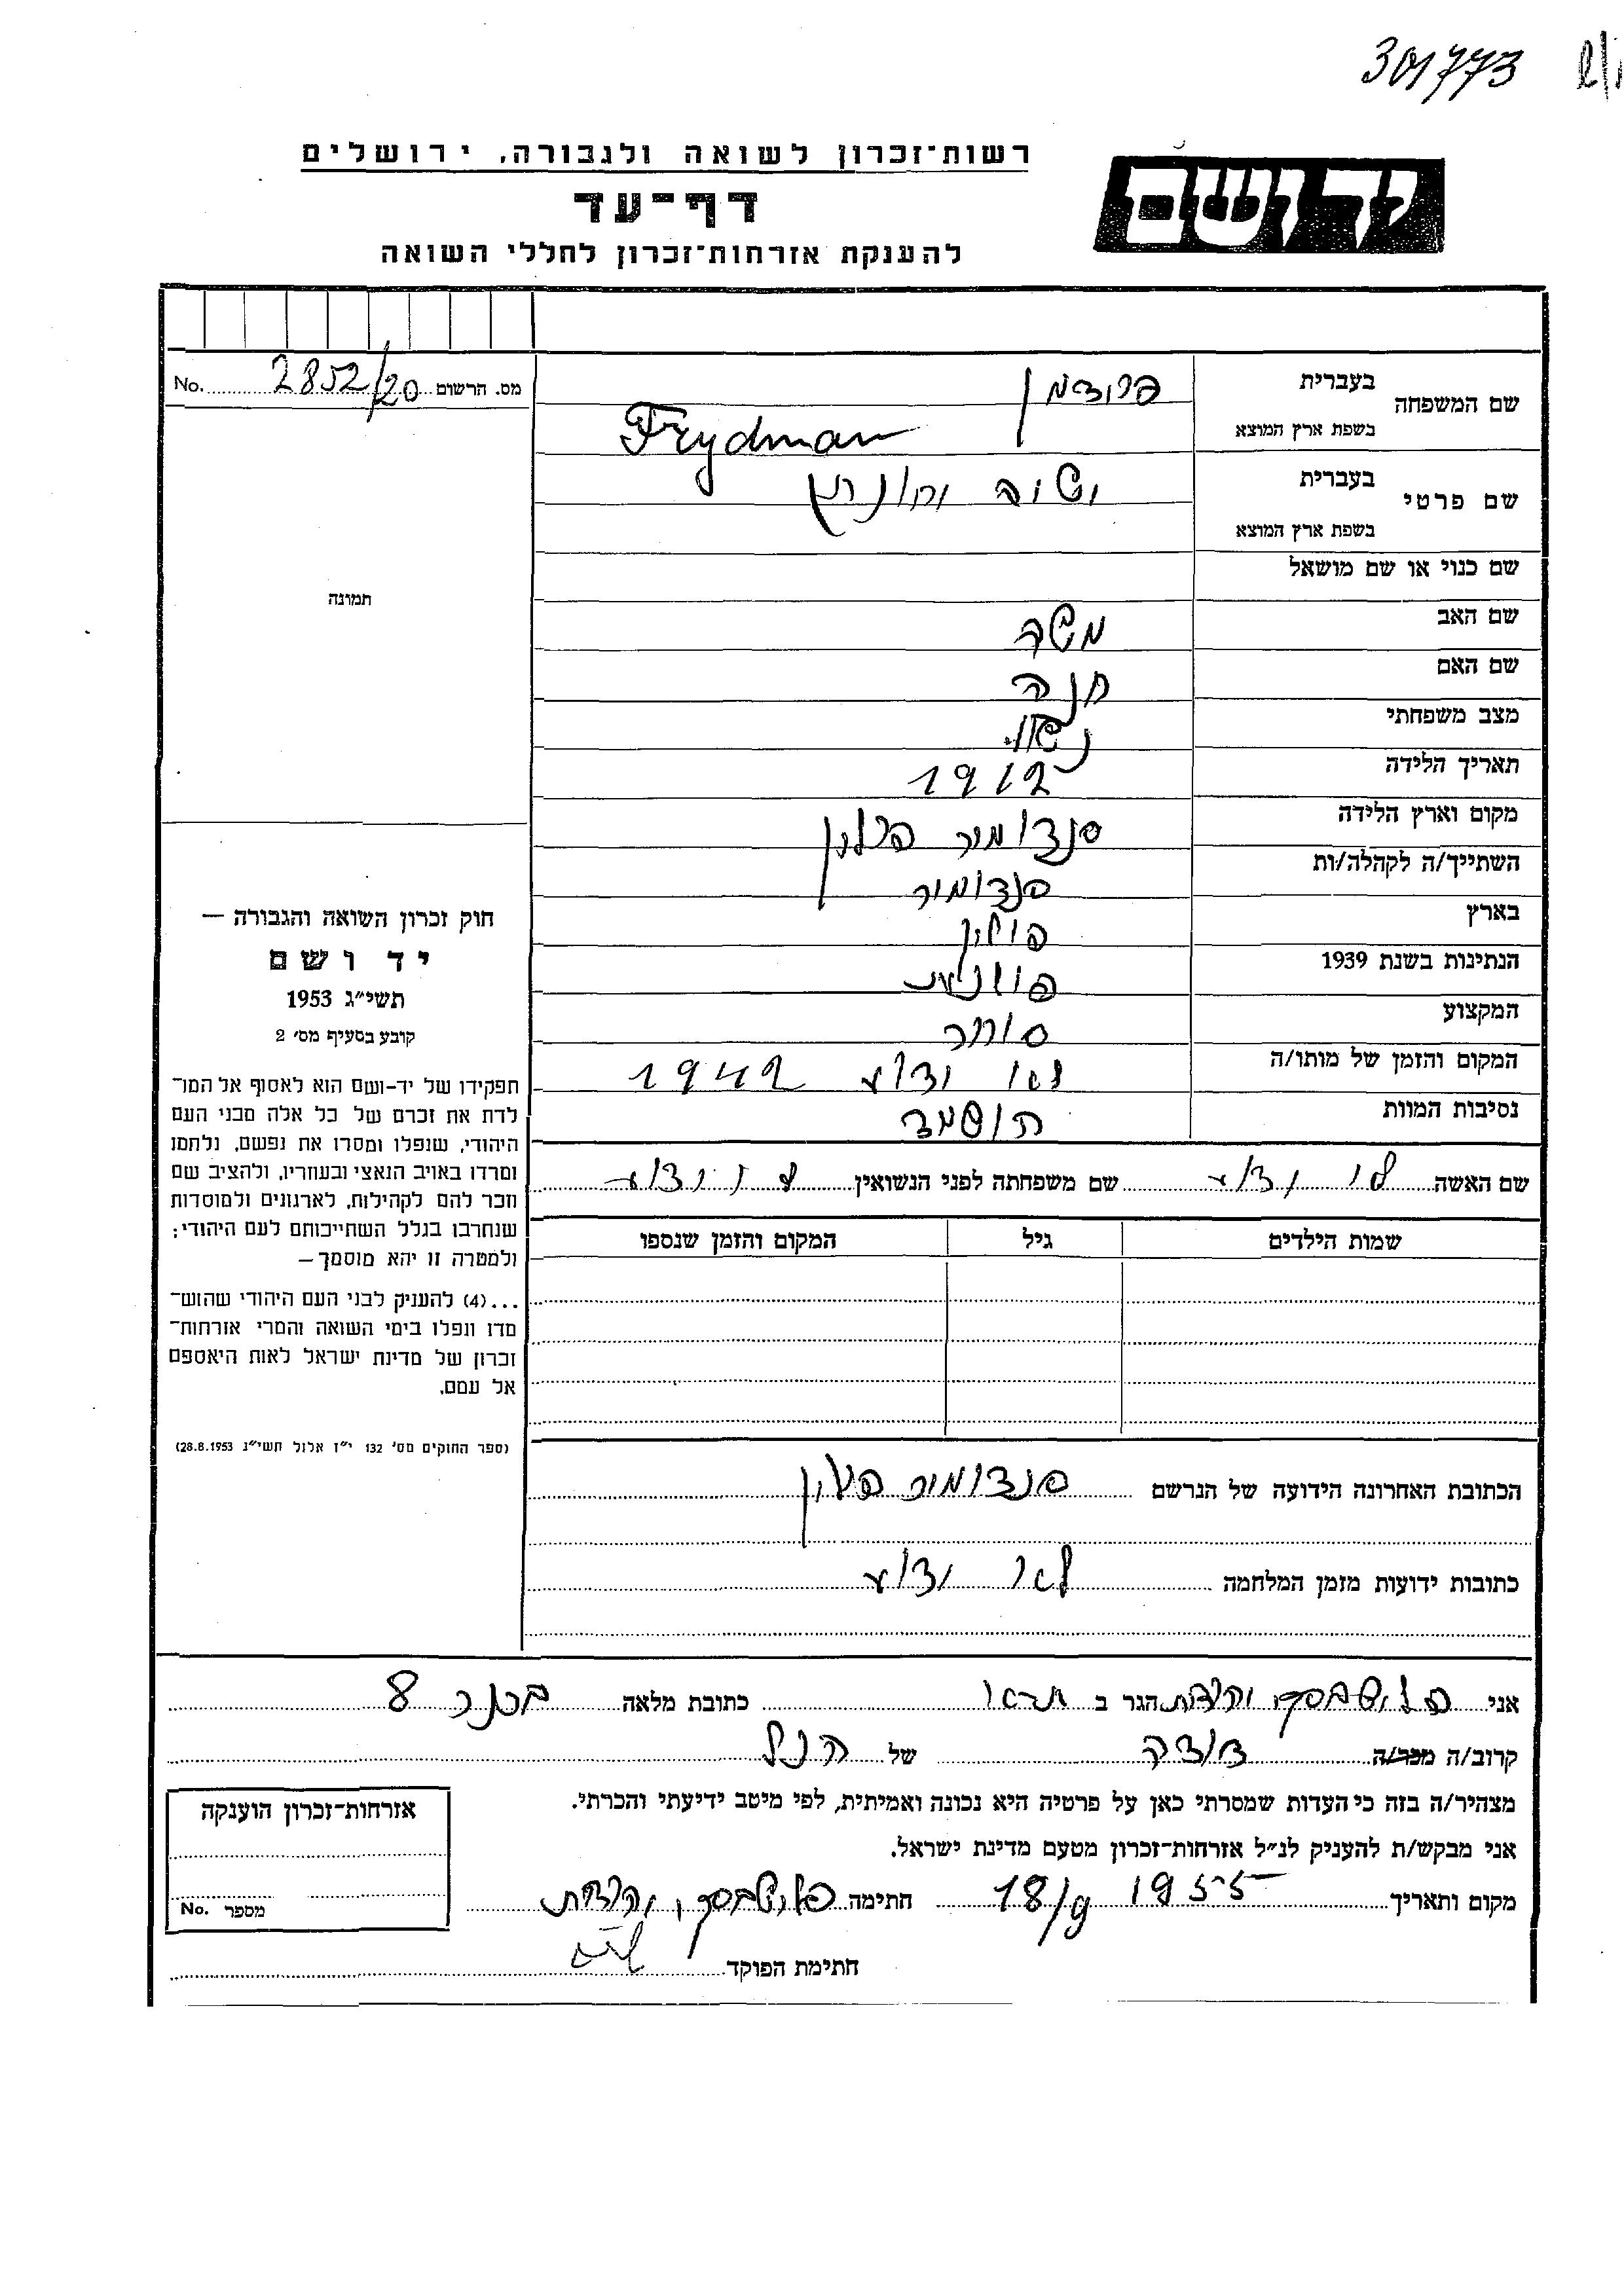 301773
רשות־זכרון לשואה ולגבורה, ירושלים
דף־עד
להענקת אזרחות־זכרון לחללי השואה
יד ושם
מס. הרשום 2852/20 No.
שם המשפחה
בעברית פרידמן
בשפת ארץ המוצא Frydman
שם פרטי
בעברית
בשפת ארץ המוצא
שם כנוי או שם מושאל
שם האב משה
שם האם חנה
מצב משפחתי נשוי
תאריך הלידה 1912
מקום וארץ הלידה סנדומיר פולין
השתייך/ה לקהלה/ות סנדומיר
בארץ פולין
הנתינות בשנת 1939 פולנית
המקצוע סוחר
המקום והזמן של מותו/ה לא ידוע 1942
נסיבות המוות הושמד
שם האשה לא ידוע שם משפחתה לפני הנשואין לא ידוע
שמות הילדים גיל המקום והזמן שנספו
הכתובת האחרונה הידועה של הנרשם סנדומיר פולין
כתובות ידועות מזמן המלחמה לא ידוע
תמונה
חוק זכרון השואה והגבורה —
יד ושם
תשי״ג 1953
קובע בסעיף מס׳ 2
תפקידו של יד־ושם הוא לאסוף אל המו־
לדת את זכרם של כל אלה מבני העם
היהודי, שנפלו ומסרו את נפשם, נלחמו
ומרדו באויב הנאצי ובעוזריו, ולהציב שם
וזכר להם לקהילות, לארגונים ולמוסדות
שנחרבו בגלל השתייכותם לעם היהודי;
ולמטרה זו יהא מוסמך —
...(4) להעניק לבני העם היהודי שהוש־
מדו ונפלו בימי השואה והמרי אזרחות־
זכרון של מדינת ישראל לאות היאספם
אל עמם.
(ספר החוקים מס׳ 132 י״ז אלול תשי״ג 28.8.1953)
אני יהודית הגר ב כתובת מלאה 8
קרוב/ה מכר/ה דודה של הנ״ל
מצהיר/ה בזה כי העדות שמסרתי כאן על פרטיה היא נכונה ואמיתית, לפי מיטב ידיעתי והכרתי.
אני מבקש/ת להעניק לנ״ל אזרחות־זכרון מטעם מדינת ישראל.
מקום ותאריך 18/9 1955 חתימה יהודית
חתימת הפוקד
אזרחות־זכרון הוענקה
מספר No.